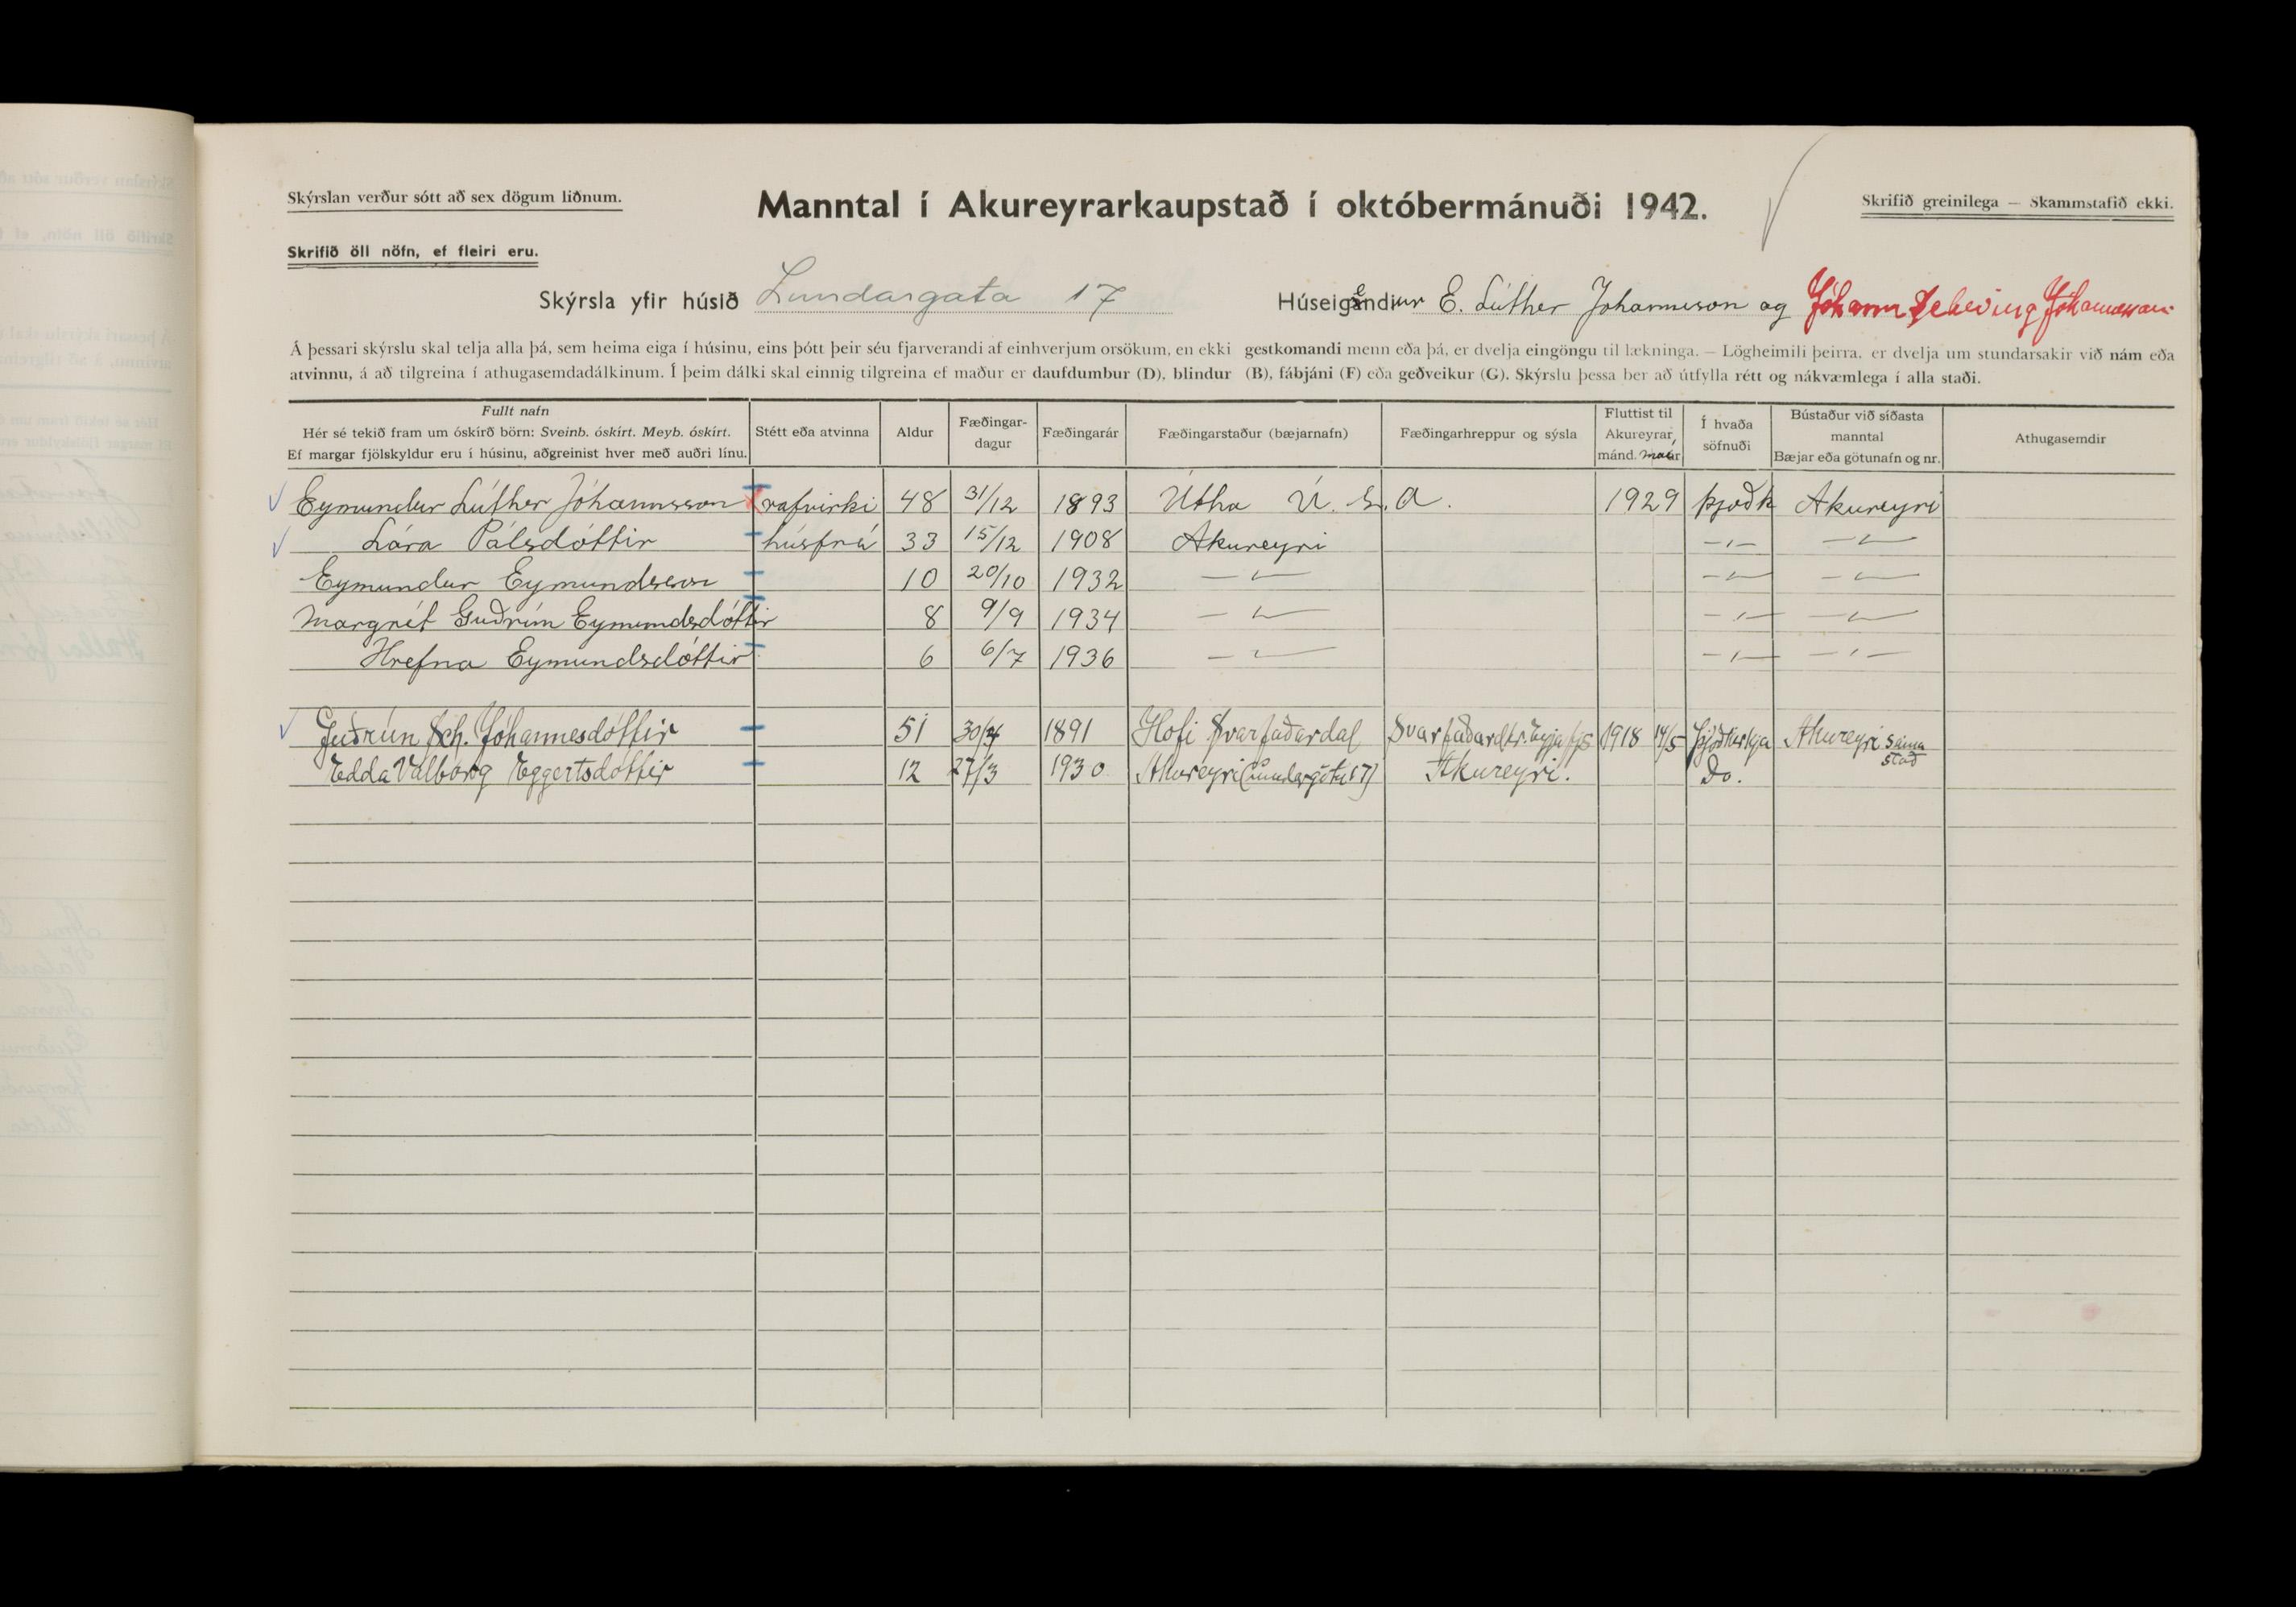 Skýrslan verður sótt að sex dögum liðnum.
Manntal í Akureyrarkaupstað í októbermánuði 1942.
Skrifið greinilega — Skammstafið ekki.
Skrifið öll nöfn, ef fleiri eru.
Skýrsla yfir húsið Lundargata 17
Húseigendur E. Lúther Jóhannsson og Jóhann Scheving Jóhannesson
Á þessari skýrslu skal telja alla þá, sem heima eiga í húsinu, eins þótt þeir séu fjarverandi af einhverjum orsökum, en ekki gestkomandi menn eða þá, er dvelja eingöngu til lækninga. — Lögheimili þeirra, er dvelja um stundarsakir við nám eða
atvinnu, á að tilgreina í athugasemdadálkinum. Í þeim dálki skal einnig tilgreina ef maður er daufdumbur (D), blindur (B), fábjáni (F) eða geðveikur (G). Skýrslu þessa ber að útfylla rétt og nákvæmlega í alla staði.
Fullt nafn
Hér sé tekið fram um óskírð börn: Sveinb. óskírt. Meyb. óskírt.
Ef margar fjölskyldur eru í húsinu, aðgreinist hver með auðri línu.
Stétt eða atvinna
Aldur
Fæðingar-
dagur
Fæðingarár
Fæðingarstaður (bæjarnafn)
Fæðingarhreppur og sýsla
Fluttist til
Akureyrar,
mánd.
Í hvaða
söfnuði
Bústaður við síðasta
manntal
Bæjar eða götunafn og nr.
Athugasemdir
Eymundur Lúther Jóhannsson rafvirki 48 31/12 1893 Útha U. S. A. 1929 þjoðk Akureyri
Lára Pálsdóttir húsfrú 33 15/12 1908 Akureyri —〃— —〃—
Eymundur Eymundsson 10 20/10 1932 —〃— —〃— —〃—
Margrét Guðrún Eymundsdóttir 8 9/9 1934 —〃— —〃— —〃—
Hrefna Eymundsdóttir 6 6/7 1936 —〃— —〃— —〃—
Guðrún Sch. Jóhannesdóttir 51 1891 Hofi Svarfaðardal 1918 14/5 Þjóðkirkja Akureyri sama stað
Edda Valborg Eggertsdóttir 12 27/3 1930 Akureyri (Lundargötu 17) Akureyri. Do.